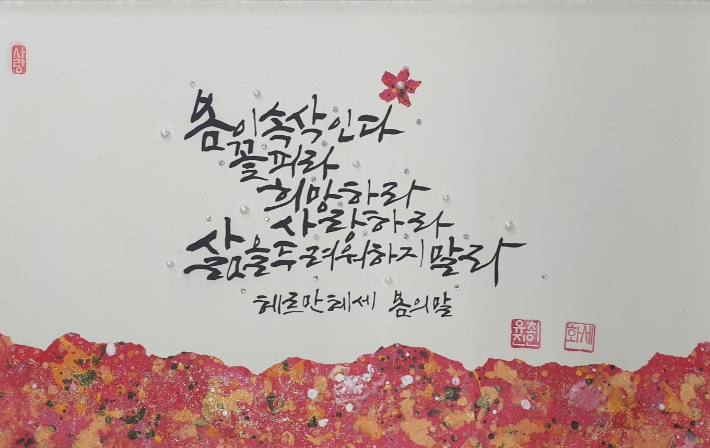 사랑
봄이속삭인다
꽃피라
희망하라
사랑하라
삶을두려워하지말라
헤르만헤세 봄의말